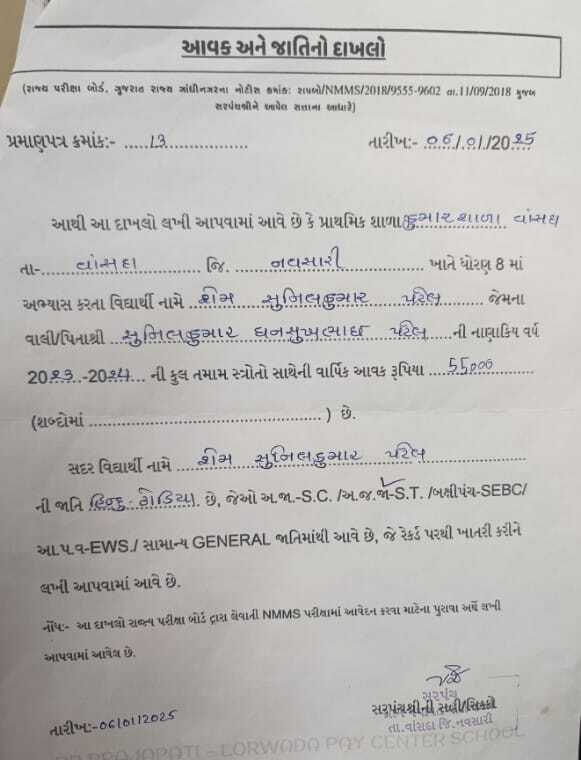 આવક અને જાતિનો દાખલો
(રાજ્ય પરીક્ષા બોર્ડ, ગુજરાત રાજ્ય ગાંધીનગરના નોટીસ ક્રમાંક: રાપબો/NMMS/2018/9555-9602 તા.11/09/2018 મુજબ
સરપંચશ્રીને આપેલ સત્તાના આધારે)
પ્રમાણપત્ર ક્રમાંક:- .....13.................. તારીખ:- 06/01/2025
આથી આ દાખલો લખી આપવામાં આવે છે કે પ્રાથમિક શાળા કુમાર શાળા વાંસદા
તા-.......વાંસદા............ જિ. .......નવસારી.................. ખાતે ધોરણ 8 માં
અભ્યાસ કરતા વિદ્યાર્થી નામે ....પ્રેમ સુનિલકુમાર પટેલ......... જેમના
વાલી/પિતાશ્રી ..સુનિલકુમાર ધનસુખભાઈ પટેલ.....ની નાણાકિય વર્ષ
2023-2024... ની કુલ તમામ સ્ત્રોતો સાથેની વાર્ષિક આવક રૂપિયા ....55,000
(શબ્દોમાં ................................................ ) છે.
સદર વિદ્યાર્થી નામે ....પ્રેમ સુનિલકુમાર પટેલ
ની જાતિ હિન્દુ-ઢોડિયા. છે, જેઓ અ.જા.-S.C. /અ.જ.જા-S.T. /બક્ષીપંચ-SEBC/
આ.પ.વ-EWS./ સામાન્ય GENERAL જાતિમાંથી આવે છે, જે રેકર્ડ પરથી ખાતરી કરીને
લખી આપવામાં આવે છે.
નોંધ:- આ દાખલો રાજ્ય પરીક્ષા બોર્ડ દ્વારા લેવાતી NMMS પરીક્ષામાં આવેદન કરવા માટેના પુરાવા અર્થે લખી
આપવામાં આવેલ છે.
સરપંચ
સરપંચશ્રીની સહી/સિક્કો
તારીખ:-06/01/2025 તા.વાંસદા જિ.નવસારી
PRAJAPATI - LORWADA PAY CENTER SCHOOL